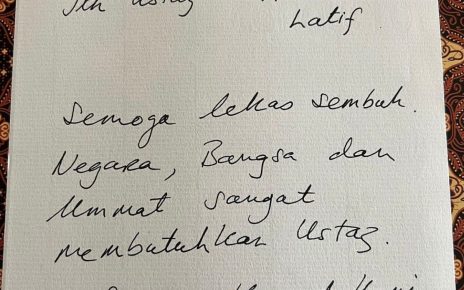 Yth Ustaz
Latif
Semoga lekas sembuh.
Negara, Bangsa dan
Ummat sangat
membutuhkan Ustaz.